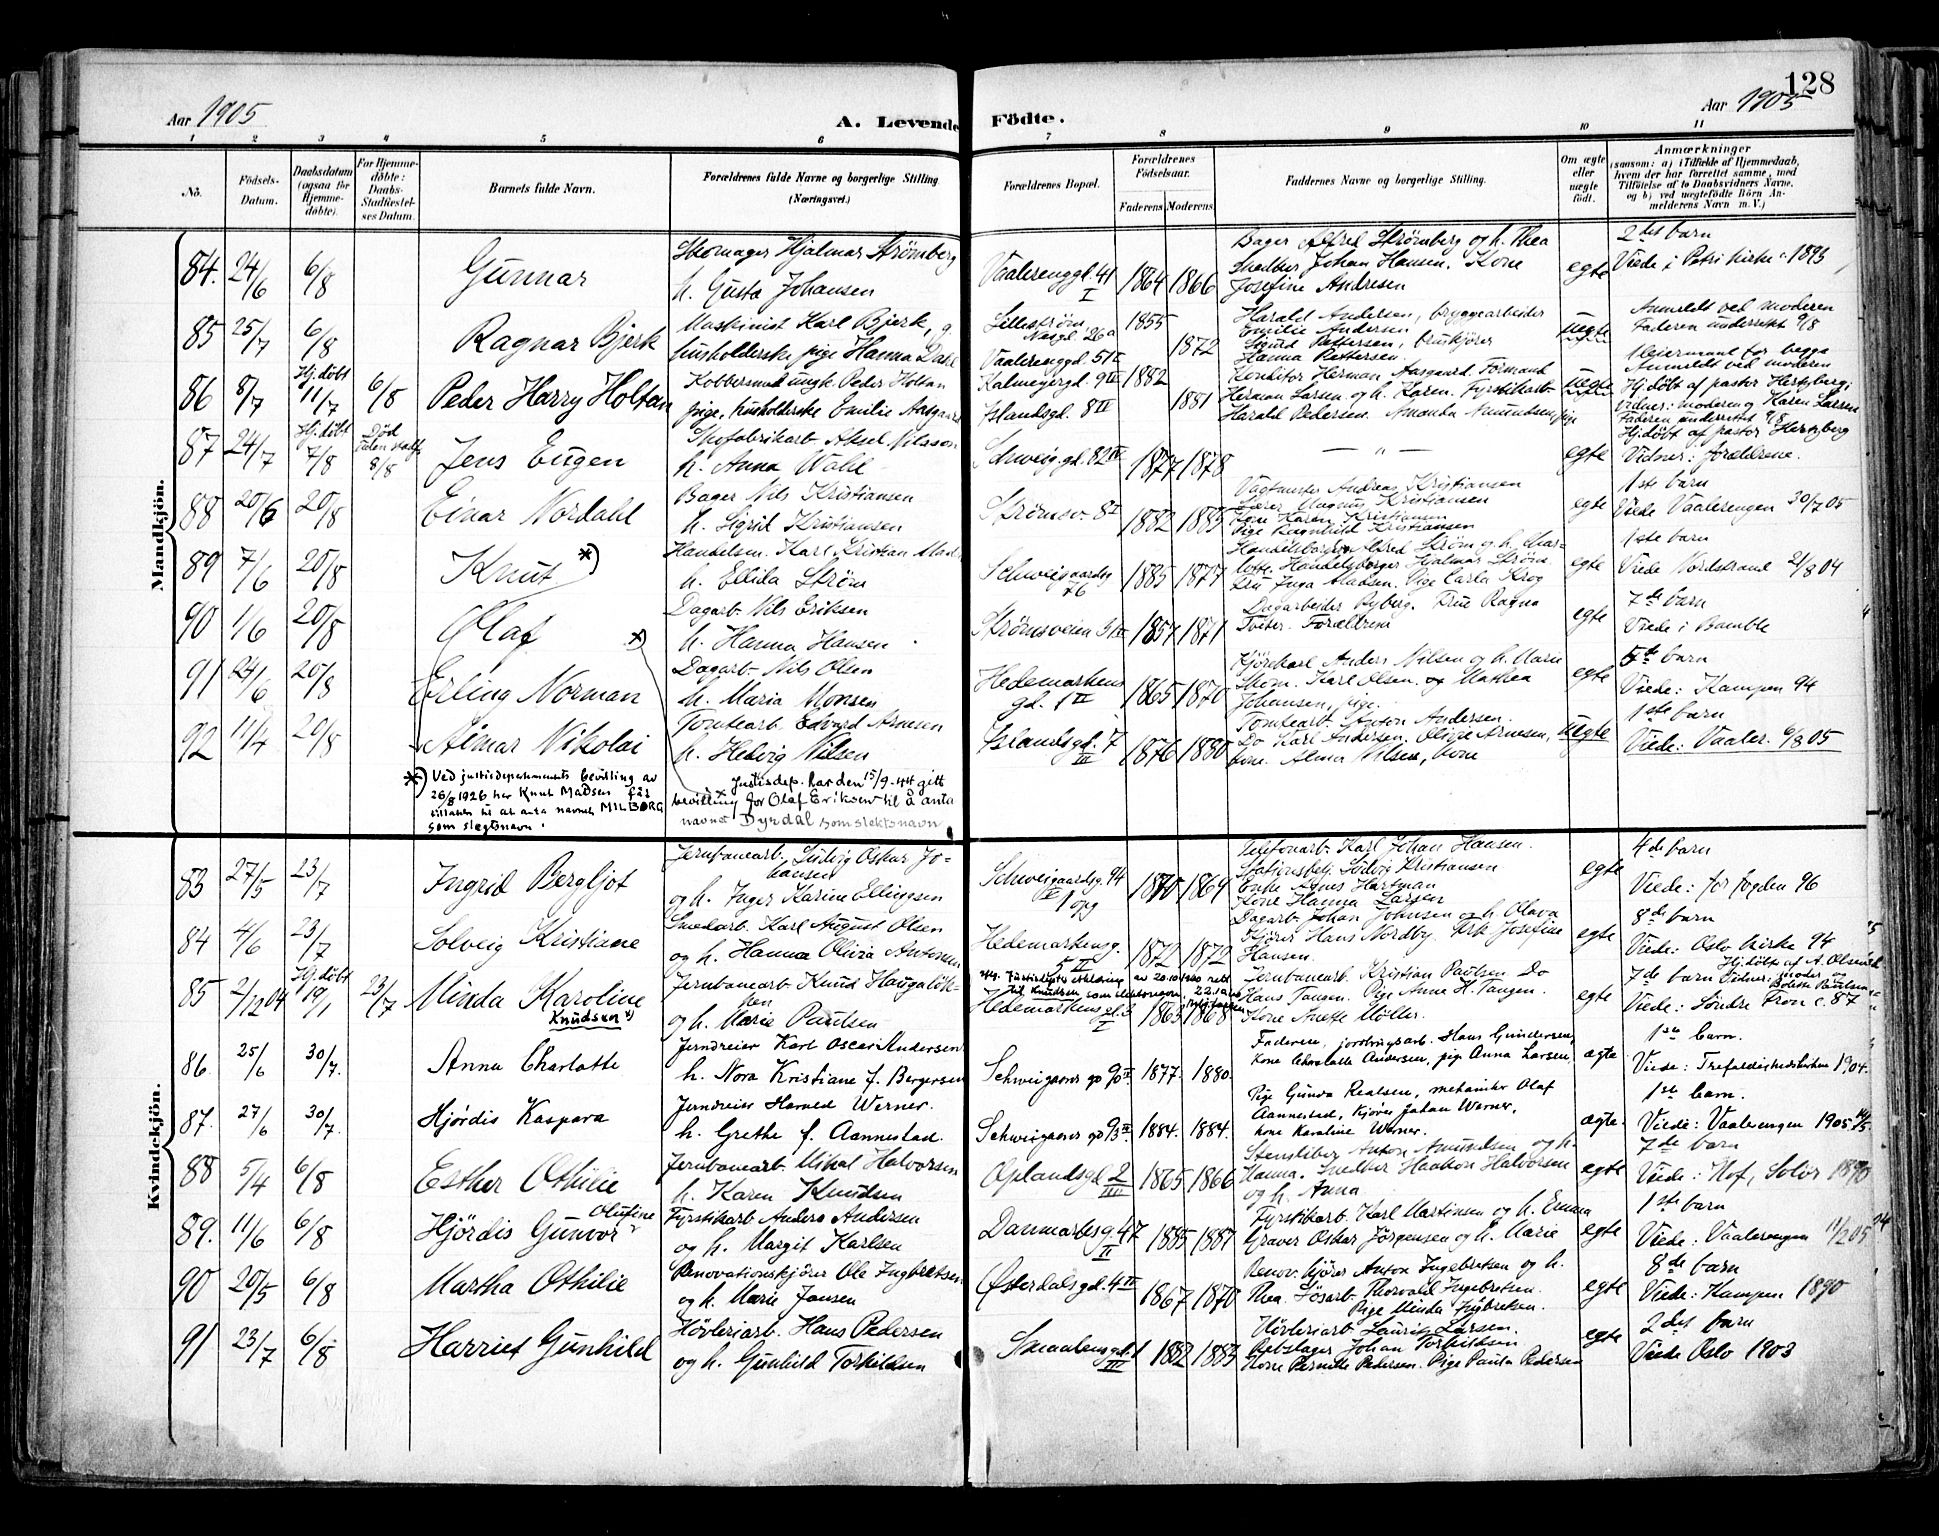 128
Aar 1905
A. Levende Födte.
Aar 1905
1 2 3 4 5 6 7 8 9 10 11
No.
Födsels-Datum.
Daabsdatum (ogsaa for Hjemme-döbte).
For Hjemme-döbte: Daabs-Stadfæstel-ses Datum.
Barnets fulde Navn.
Forældrenes fulde Navne og borgerlige Stilling (Næringsvei.)
Forældrenes Bopæl.
Forældrenes Födselsaar.
Faderens. Moderens.
Faddernes Navne og borgerlige Stilling.
Om ægte eller uægte födt.
Anmærkninger
(saasom: a) i Tilfælde af Hjemmedaab, hvem der har forrettet samme, med Tilföielse af to Daabsvidners Navne, og b) ved uægtefödte Börn An-melderens Navn m. V.)
Mandkjön.
84. 24/6 6/8 Gunnar
Skomager Hjalmar Strömberg
h. Gusta Johansen
Vaalerenggd. 41 I 1864 1866
Bager Alfred Strömberg og h. Thea
Johan Hansen. Kone
Josefine Andresen
egte
2det barn
Viede i Petri kirke 1895
85 25/7 6/8 Ragnar Bjerk
Maskinist Karl Bjerk, g.
husholderske pige Hanna Dahl
Lilleström 1855
Vaalerenggd. 51 1872
Harald Andersen, bryggearbeider
Emilie Andersen
Sigurd Pettersen,
Hanna Pettersen.
uegte
Anmeldt ved moderen
Faderen underrettet 9/8
86 8/7 Hj. döbt 11/7 6/8 Peder Harry Holtan
Kobbersmed ungk. Peder Holtan
pige, husholderske Emilie Aasgaard
Kalmeyergd. 9 III 1882
Islandsgd. 8 II 1881
Konditor Herman Aasgaard. Formand
Herman Larsen og h. Karen. Fyrstikarb.
Harald Pedersen. Amanda Amundsen, pige
uegte
for begge
Anmeldt ved moderen
Hj. döbt af pastor Hertzberg;
Vidner: moderen og Karen Larsen
Faderen underrettet 9/8
87 24/7 Hj. döbt 7/8 Död 8/8 Jens Eugen
Skofabrikarb. Aksel Nilsson
h. Anna Wahl
Schweig. gd. 82 IV 1877 1878
— " —
egte
Hj. döbt af pastor Hertzberg
Vidner: forældrene.
88 20/6 20/8 Einar Nordahl
Bager Nils Kristiansen
h. Sigrid Kristiansen
Strömsv. 8 I 1882 1885
Vagtmster Andreas Kristiansen
Lærer Magnus Kristiansen
Kone Karen Kristiansen
Pige Ragnhild Kristiansen
egte
1ste barn
Viede Vaalerengen 30/7 05
89 7/6 20/8 Knut *)
Handelsm. Karl Kristian Mad-
h. Ellida Ström
Schweigaardsg 76 1885 1877
Handelsborger Alfred Ström og h. Char-
lotte. Handelsborger Hjalmar Ström
Fru Inga Madsen. Pige Carla Krog
egte
1ste barn
Viede Nordstrand 21/8 04
90 1/6 20/8 Olaf *)
Dagarb. Nils Eriksen
h. Hanna Hansen
Strömsveien 31 III 1857 1871
Dagarbeider Ryberg. Frue Ragna
Tveter. Forældrene
egte
7de barn
Viede i Bamble
91 24/6 20/8 Erling Norman
Dagarb. Nils Olsen
h. Maria Monsen
Hedemarkens gd. 1 III 1865 1870
Kjörekarl Anders Nilsen og h. Marie
Skom. Karl Olsen. og Mathea
Johansen, pige.
egte
5te barn
Viede: Kampen 94
92 11/4 20/8 Aimar Nikolai
Tomtearb. Edvard Arnesen
h. Hedvig Nilsen
Islandsgd. 7 III 1876 1880
Tomtearb. Anton Andersen.
Do Karl Andersen. Olivie Arnesen,
kone. Alma Nilsen, kone
uegte
1ste barn
Viede: Vaaler. 6/8 05
*) Ved justisdepartements bevilling av
26/8 1926 har Knut Madsen fåt
tilladelse til at anta navnet MILBORG
som slegtsnavn.
x Justisdep. har den 15/9-44 gitt
bevilling for Olaf Eriksen til å anta
navnet Dyrdal som slektsnavn
Kvindekjön.
83 27/5 23/7 Ingrid Bergljot
Jernbanearb. Ludvig Oskar Jo-
hansen
og h. Inger Karine Ellingsen
Schweigaardsg. 94 IV 1 opg 1870 1869
Telefonarb. Karl Johan Hansen.
Stationsbetj. Ludvig Kristiansen
Enke Agnes Hartman
Kone Hanna Larsen
egte
4de barn
Viede: for fogden 96
84 4/6 23/7 Solveig Kristiane
Smedarb. Karl August Olsen
og h. Hanna Olivia Antonsen
Hedemarkeng. 5 II 1872 1872
Dagarb. Johan Johnsen og h. Olava
Kjörer Hans Nordby. Frk Josefine
Hansen.
egte
8de barn
Viede: Oslo kirke 94
85 2/12 04 Hj. döbt 19/1 23/7 Minda Karoline
Knudsen x)
Jernbanearb. Knud Haugalök-
ken
og h. Marie Paulsen
Hedemarkens gd. 3 I 1863 1868
Jernbanearb. Kristian Paulsen. Do
Hans Tansen. Pige Anne H. Tangen.
Kone Anette Möller.
egte
Hj. döbt af A. Olsen
7de barn Vidner: moder og
Viede: Söndre Fron c. 87
86. 25/6 30/7. Anna Charlotte
Jerndreier Karl Oscar Andersen
h. Nora Kristiane f. Bergersen
Schweigaards gd 90 II 1877. 1880.
Faderen, jordbrugsarb. Hans Gundersen,
kone Charlotte Andersen, pige Anna Larsen
ægte
1ste barn.
Viede: Trefoldighedskirken 1904.
87. 27/6 30/7. Hjördis Kaspara
Jerndreier Harald Werner.
h. Grethe f. Aannestad.
Schweigaards gd 93 II. 1884. 1884.
Pige Gunda Realsen, mekaniker Olaf
Aannestad, Kjörer Johan Werner,
kone Karoline Werner.
ægte.
1ste barn.
Viede: Vaalerengen 1905
88 5/4 6/8 Esther Othilie
Jernbanearb. Mikal Halvorsen
h. Karen Knudsen
Oplandsgd 2 III 1865 1866
Stensliber Anton Amundsen og h.
Hanna. Snedker Haakon Halvorsen
og h. Anna
egte
7de barn
Viede: Hof, Solör 1890
89. 11/6 6/8 Hjördis Gunvor Olufine
Fyrstikarb. Anders Andersen
og h. Margit Karlsen
Danmarksg. 47 II 1885 1887
Fyrstikarb. Karl Martinsen og h. Emma
Graver Oskar Jörgensen og h. Marie
egte
1ste barn
Viede: Vaalerengen 11/2 05
90 20/5 6/8 Martha Othilie
Renovationskjörer Ole Ingbretsen
og h. Marie Jansen
Österdalsgd. 4 II 1867 1870
Renov. kjörer Anton Ingebretsen og h.
Thea. Lösarb. Thorvald Ingebretsen.
Pige Minda Ingbretsen.
egte
8de barn
Viede: Kampen 1890
91 23/7 6/8 Harriet Gunhild
Hövleriarb. Hans Pedersen
og h. Gunhild Torkildsen
Smaalensgd. 1 III 1882 1883
Hövleriarb. Laurits Larsen.
Rebslager Johan Torkildsen
Kone Pernille Pedersen. Pige Paula Pedersen
egte
2det barn
Viede Oslo 1903